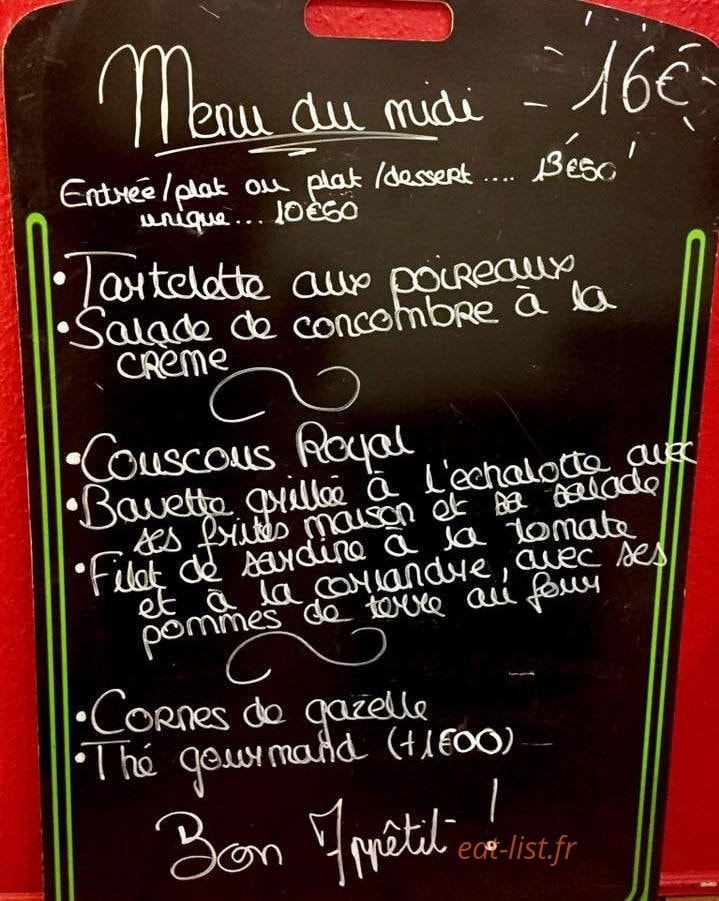 Menu du midi - 16€
Entrée/plat ou plat/dessert .... 13€50
unique... 10€50
• Tartelette aux poireaux
• Salade de concombre à la
crème
• Couscous Royal
• Bavette grillée à l'echalotte avec
ses frites maison et sa salade
• Filet de sardine à la tomate
et à la coriandre, avec ses
pommes de terre au four
• Cornes de gazelle
• Thé gourmand (+1€00)
Bon Appêtit !
eat-list.fr